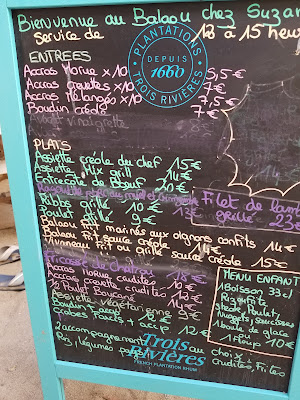 Bienvenue au Balaou chez Suzan
service de 12 à 15 heur
PLANTATIONS
DEPUIS
1660
TROIS RIVIÈRES
ENTREES
Accras Morue x10 5,5€
Accras crevettes x10 7€
Accras mélangés x10 7,5€
Boudin créole 7€
vinaigrette
PLATS
Assiette créole du chef 15€
Assiette Mix grill 14€
Entrecôte de Boeuf 20€
Ribbs grillé 10€ 13€
Poulet grillé 9€
Filet de
grillé 23€
Balaou Frit marinés aux oignons confits 14€
Balaou Frit sauce créole 14€
Vivanneau Frit ou grillé sauce créole 15€
Fricassé de Chatrou 18€
Accras morue crudités 10€
Accras crevette crudités 12€
½ Poulet Boucané 14€
Assiette végétarienne 9€
crabes Farcis + accp 12€
2 accompagnements au choix :
Riz, légumes pays, crudités, Frites
MENU ENFANT
1 Boisson 33cl
Baguette
Steak, Poulet,
Nuggets, saucisses
1 boule de glace
1 Floup 10€
Trois
Rivières
FRENCH PLANTATION RHUM